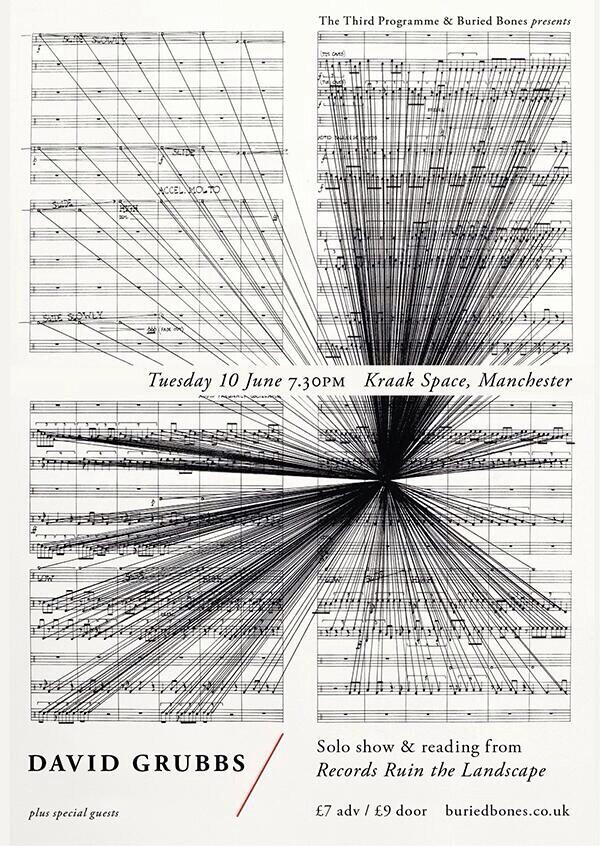 The Third Programme & Buried Bones presents
SLIDE SLOWLY
SLIDE
ACCEL. MOLTO
SLIDE
HIGH
SLIDE SLOWLY
(FADE OUT)
Tuesday 10 June 7.30PM Kraak Space, Manchester
LOW
LOW
DAVID GRUBBS
Solo show & reading from
Records Ruin the Landscape
plus special guests
£7 adv / £9 door buriedbones.co.uk